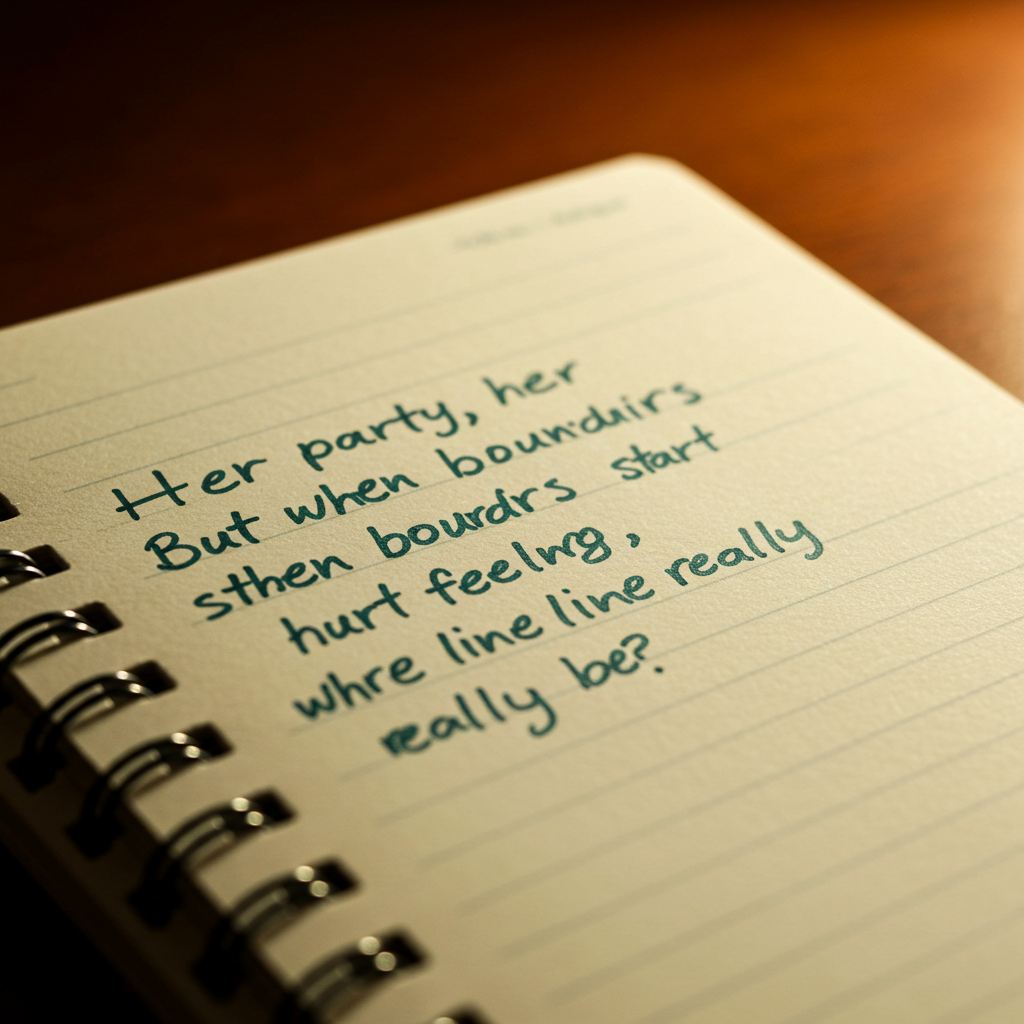 Her party, her
But when boun·duirs
sthen bourdrs start
hurt feeling,
whre line line really
really be?.